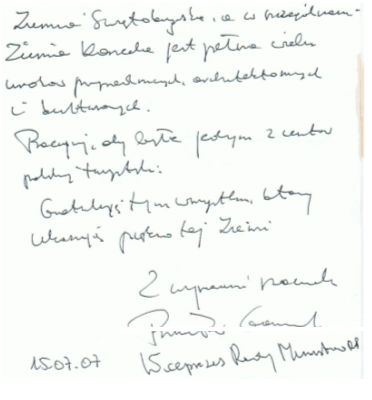 Ziemia Świętokrzyska, a w szczególności
Ziemia Konecka jest pełna wielu
urodów przyrodniczych, architektonicznych
i kulturowych.
Pracuję, aby była jednym z centrów
polskiej turystyki.
Gratuluję tym wszystkim, którzy
ukazują piękno tej Ziemi
Z wyrazami szacunku
15.07.07 Wiceprezes Rady Ministrów RP